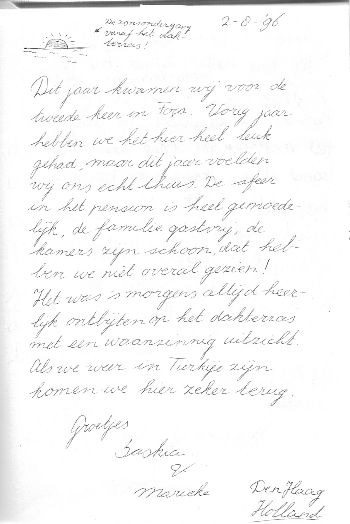 De zonsondergang
vanaf het dak-
terras!
2-8-'96
Dit jaar kwamen wij voor de
tweede keer in Foça. Vorig jaar
hebben we het hier heel leuk
gehad, maar dit jaar voelden
wij ons echt thuis. De sfeer
in het pension is heel gemoede-
lijk, de familie gastvrij, de
kamers zijn schoon, dat heb-
ben we niet overal gezien!
Het was 's morgens altijd heer-
lijk ontbijten op het dakterras
met een waanzinnig uitzicht.
Als we weer in Turkije zijn
komen we hier zeker terug.
Groetjes
Saskia
&
Marieke
Den Haag
Holland